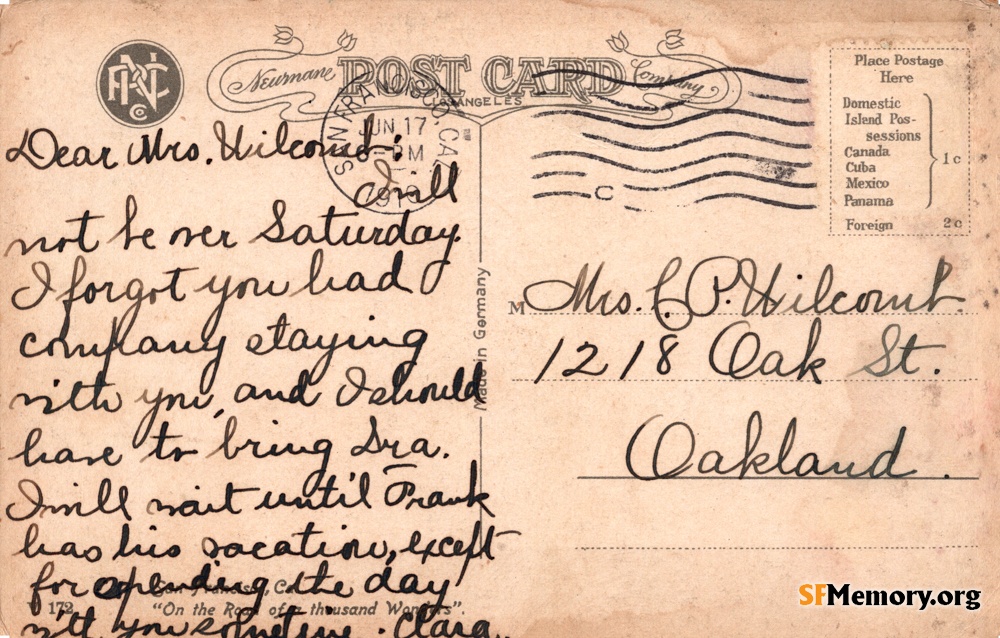 Newmane POST CARD Company
LOS ANGELES
Place Postage
Here
Domestic
Island Pos-
sessions
Canada
Cuba
Mexico
Panama
1c
Foreign 2c
SAN FRANCISCO, CAL.
JUN 17
PM
C
Dear Mrs. Wilcomb:
I will
not be over Saturday.
I forgot you had
company staying
with you, and I should
have to bring Ira.
I will wait until Frank
has his vacation, except
for spending the day
with you sometime. Clara.
Made in Germany
M Mrs. C. P. Wilcomb.
1218 Oak St.
Oakland.
San Francisco, Cal.
V 172 "On the Road of a thousand Wonders".
SFMemory.org